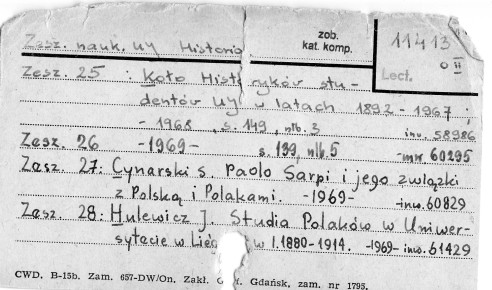 zob.
kat. komp.
11413
Lect.
O II
Zesz. nauk. UJ Historia
Zesz. 25 : Koło Historyków stu-
dentów UJ w latach 1892-1967 ;
- 1968 , s. 149, nlb. 3 inw. 58986
Zesz. 26 -1969- s. 139, nlb. 5 -inw 60295
Zesz. 27: Cynarski S. Paolo Sarpi i jego związki
z Polską i Polakami. -1969- -inw. 60829
Zesz. 28: Hulewicz J. Studia Polaków w Uniwer-
sytecie w Liège w l. 1880-1914. -1969- inw. 61429
CWD. B-15b. Zam. 657-DW/On. Zakł. Gdańsk, zam. nr 1795.